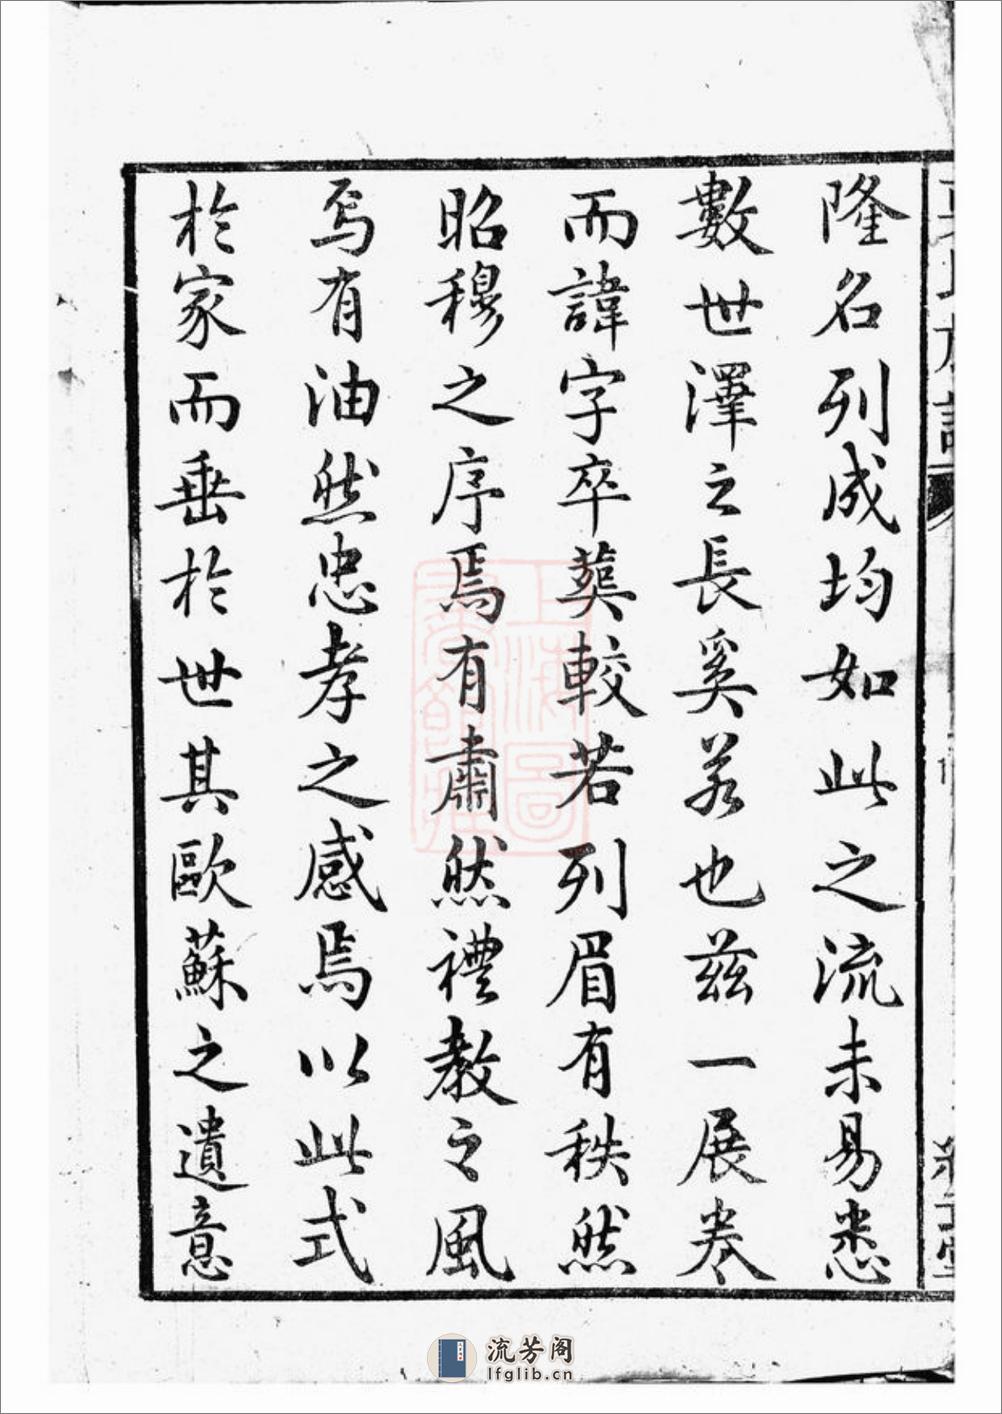 隆名列成均如此之流未易悉
數世澤之長奚若也茲一展卷
而諱字卒葬較若列眉有秩然
昭穆之序焉有肅然禮教之風
焉有油然忠孝之感焉以此式
於家而垂於世其歐蘇之遺意
上海圖
流芳阁
lfglib.cn